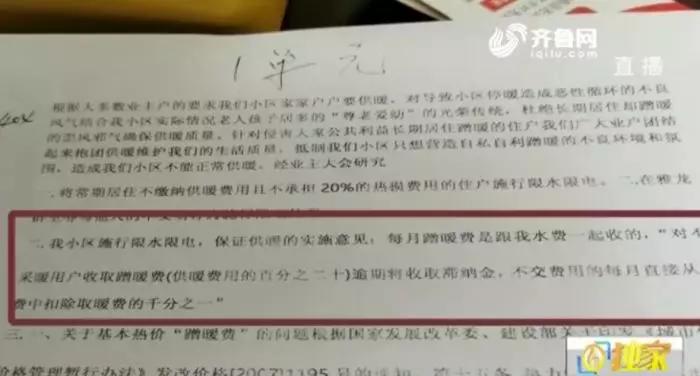 齐鲁网
直播
1单元
404
根据大多数业主户的要求我们小区家家户户要供暖，对导致小区停暖造成恶性循环的不良
风气结合我小区实际情况老人孩子居多的“尊老爱幼”的光荣传统，杜绝长期居住却蹭暖
的歪风邪气确保供暖质量。针对侵害人家公共利益长期居住蹭暖的住户我们广大业户团结
起来抱团供暖维护我们的生活质量。抵制我们小区只想营造自私自利蹭暖的不良环境和氛
围，造成我们小区不能正常供暖。经业主大会研究
一.将常期居住不缴纳供暖费用且不承担20%的热损费用的住户施行限水限电。二.在雅龙
二.我小区施行限水限电，保证供暖的实施意见：每月蹭暖费是跟我水费一起收的，“对不
采暖用户收取蹭暖费(供暖费用的百分之二十)逾期将收取滞纳金，不交费用的每月直接从
费中扣除取暖费的千分之一”
三.一、关于基本热价“蹭暖费”的问题根据国家发展改革委、建设部关于印发《城市
价格管理暂行办法》发改价格[2007]1195号的通知，第十五条
独家